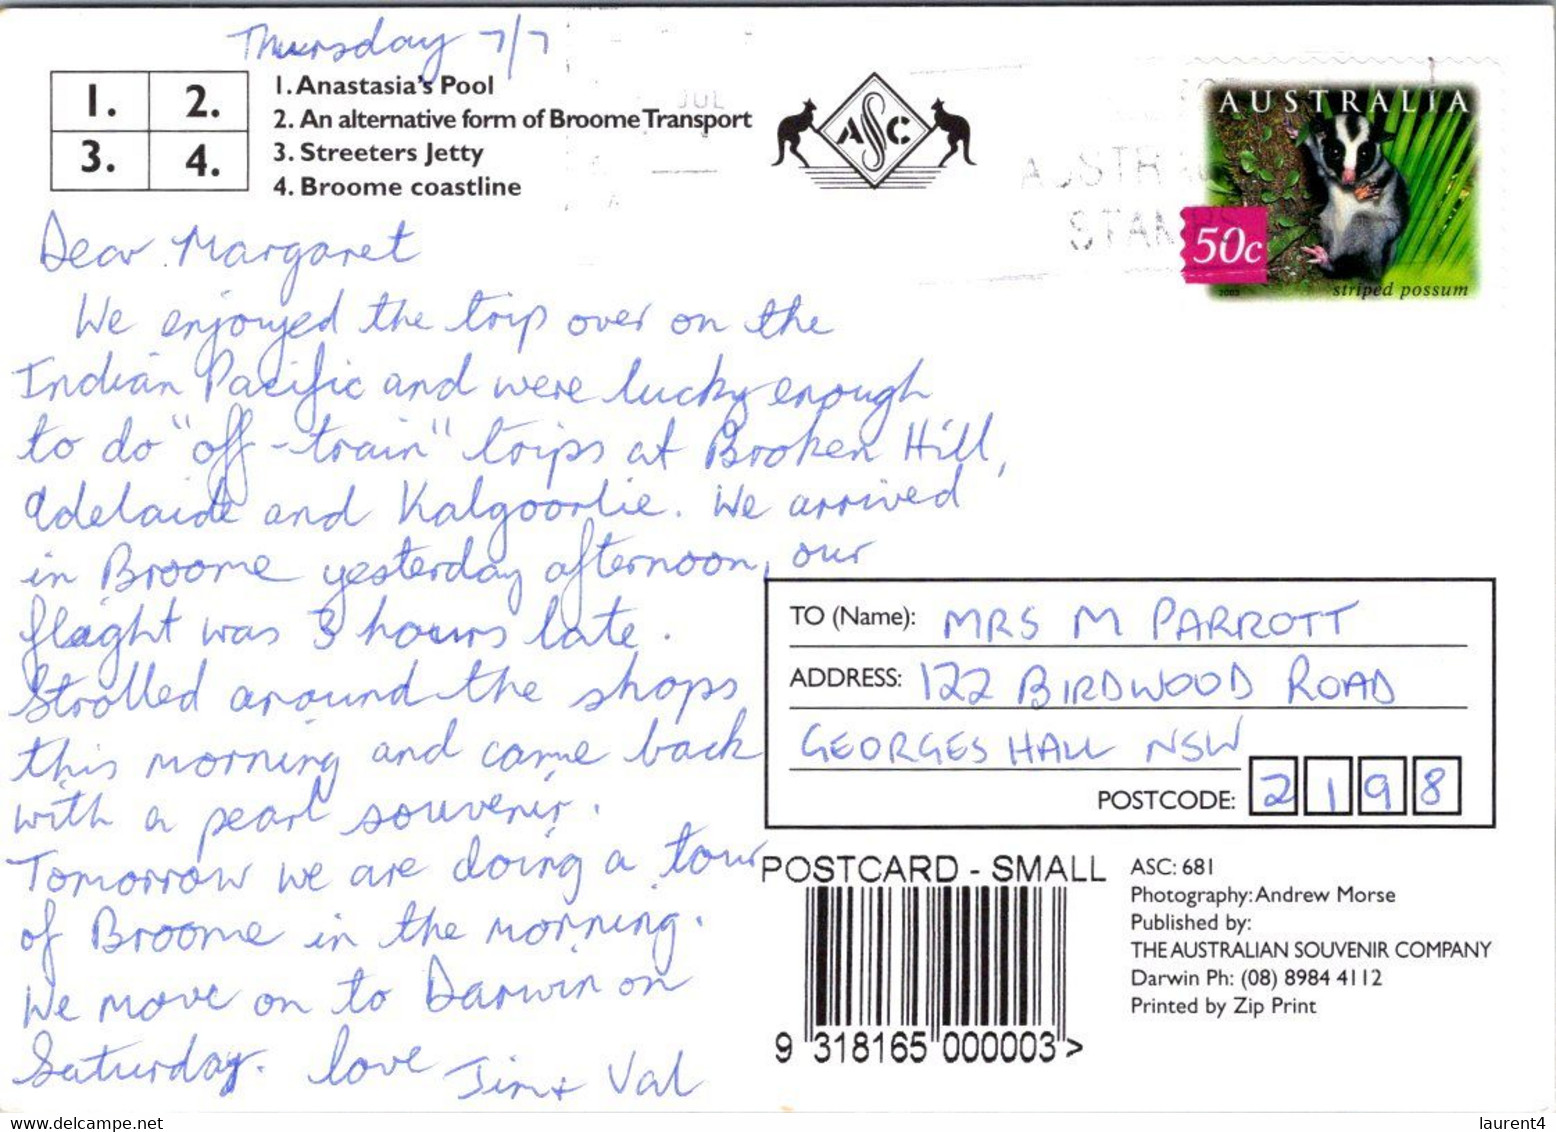 Thursday 7/7
1.
2.
3.
4.
1. Anastasia's Pool
2. An alternative form of Broome Transport
3. Streeters Jetty
4. Broome coastline
JUL
ASC
STAMPS
AUSTRALIA
50c
2003
striped possum
Dear Margaret
We enjoyed the trip over on the
Indian Pacific and were lucky enough
to do "off-train" trips at Broken Hill,
Adelaide and Kalgoorlie. We arrived
in Broome yesterday afternoon, our
flight was 3 hours late.
Strolled around the shops
this morning and came back
with a pearl souvenir.
Tomorrow we are doing a tour
of Broome in the morning.
We move on to Darwin on
Saturday. love Jim + Val
TO (Name): MRS M PARROTT
ADDRESS: 122 BIRDWOOD ROAD
GEORGES HALL NSW
POSTCODE: 2198
POSTCARD - SMALL
9 318165 000003 >
ASC: 681
Photography: Andrew Morse
Published by:
THE AUSTRALIAN SOUVENIR COMPANY
Darwin Ph: (08) 8984 4112
Printed by Zip Print
laurent4